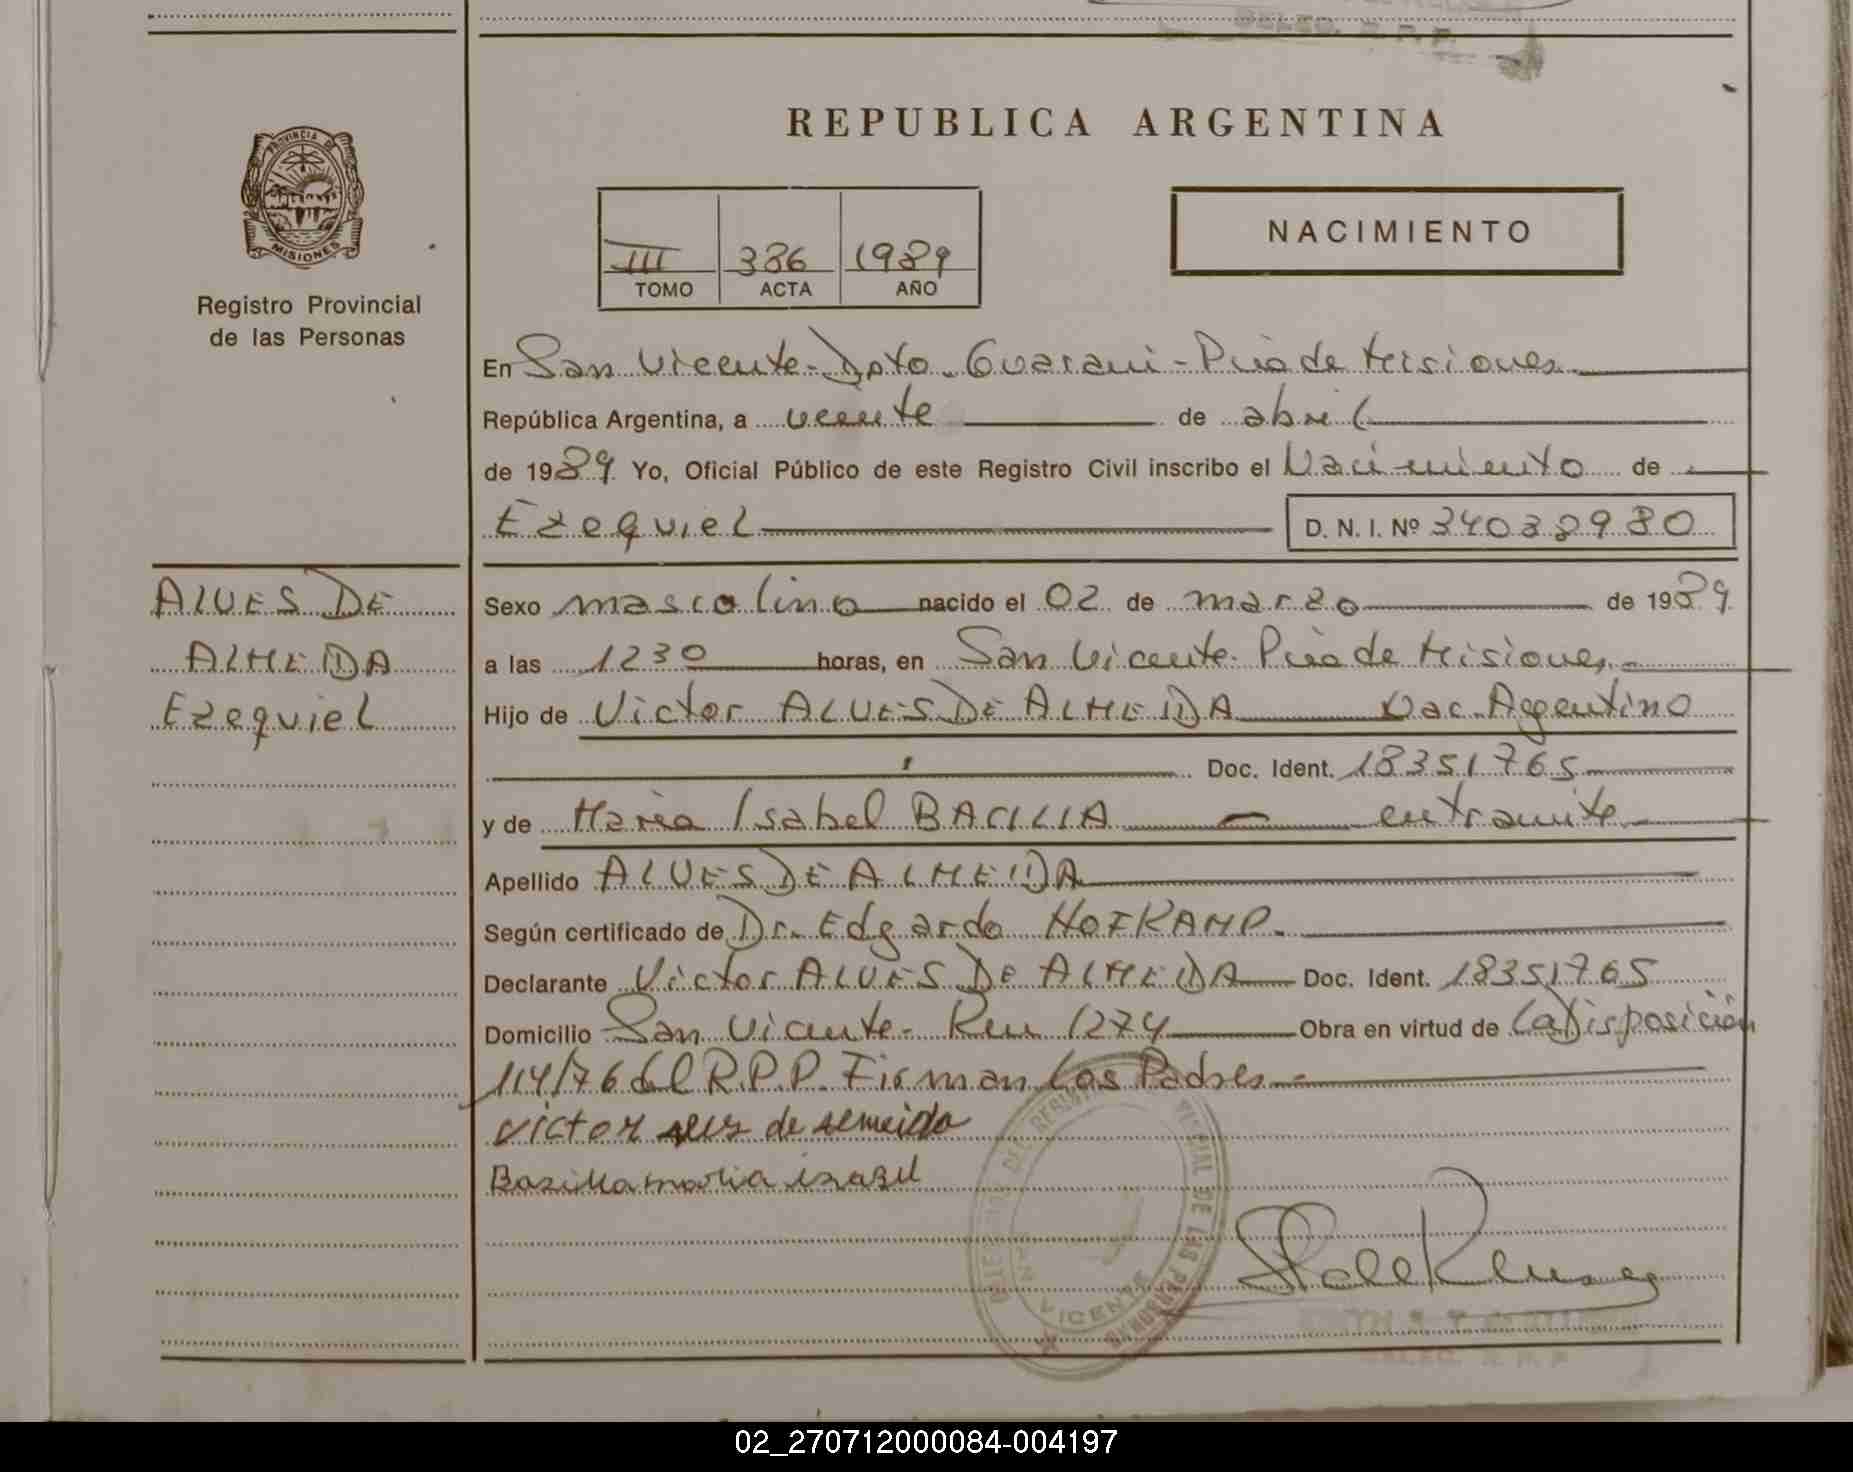 REPUBLICA ARGENTINA
PROVINCIA DE
MISIONES
Registro Provincial
de las Personas
III 386 1989
TOMO ACTA AÑO
NACIMIENTO
En San Vicente-Dpto. Guarani-Pcia de Misiones
República Argentina, a veinte de abril
de 1989 Yo, Oficial Público de este Registro Civil inscribo el Nacimiento de
Ezequiel D. N. I. Nº 34038980
ALVES DE
ALMEIDA
Ezequiel
Sexo masculino nacido el 02 de marzo de 1989
a las 1230 horas, en San Vicente. Pcia de Misiones
Hijo de Victor ALVES DE ALMEIDA Nac. Argentino
Doc. Ident. 18351765
y de Maria Isabel BACILIA en tramite
Apellido ALVES DE ALMEIDA
Según certificado de Dr. Edgardo HOFKAMP.
Declarante Victor ALVES DE ALMEIDA Doc. Ident. 18351765
Domicilio San Vicente- Km 1274 Obra en virtud de la Disposición
114/76 del R.P.P. Firman los Padres
victor de almeida
Bazilia maria izabel
VICENTE
02_270712000084-004197